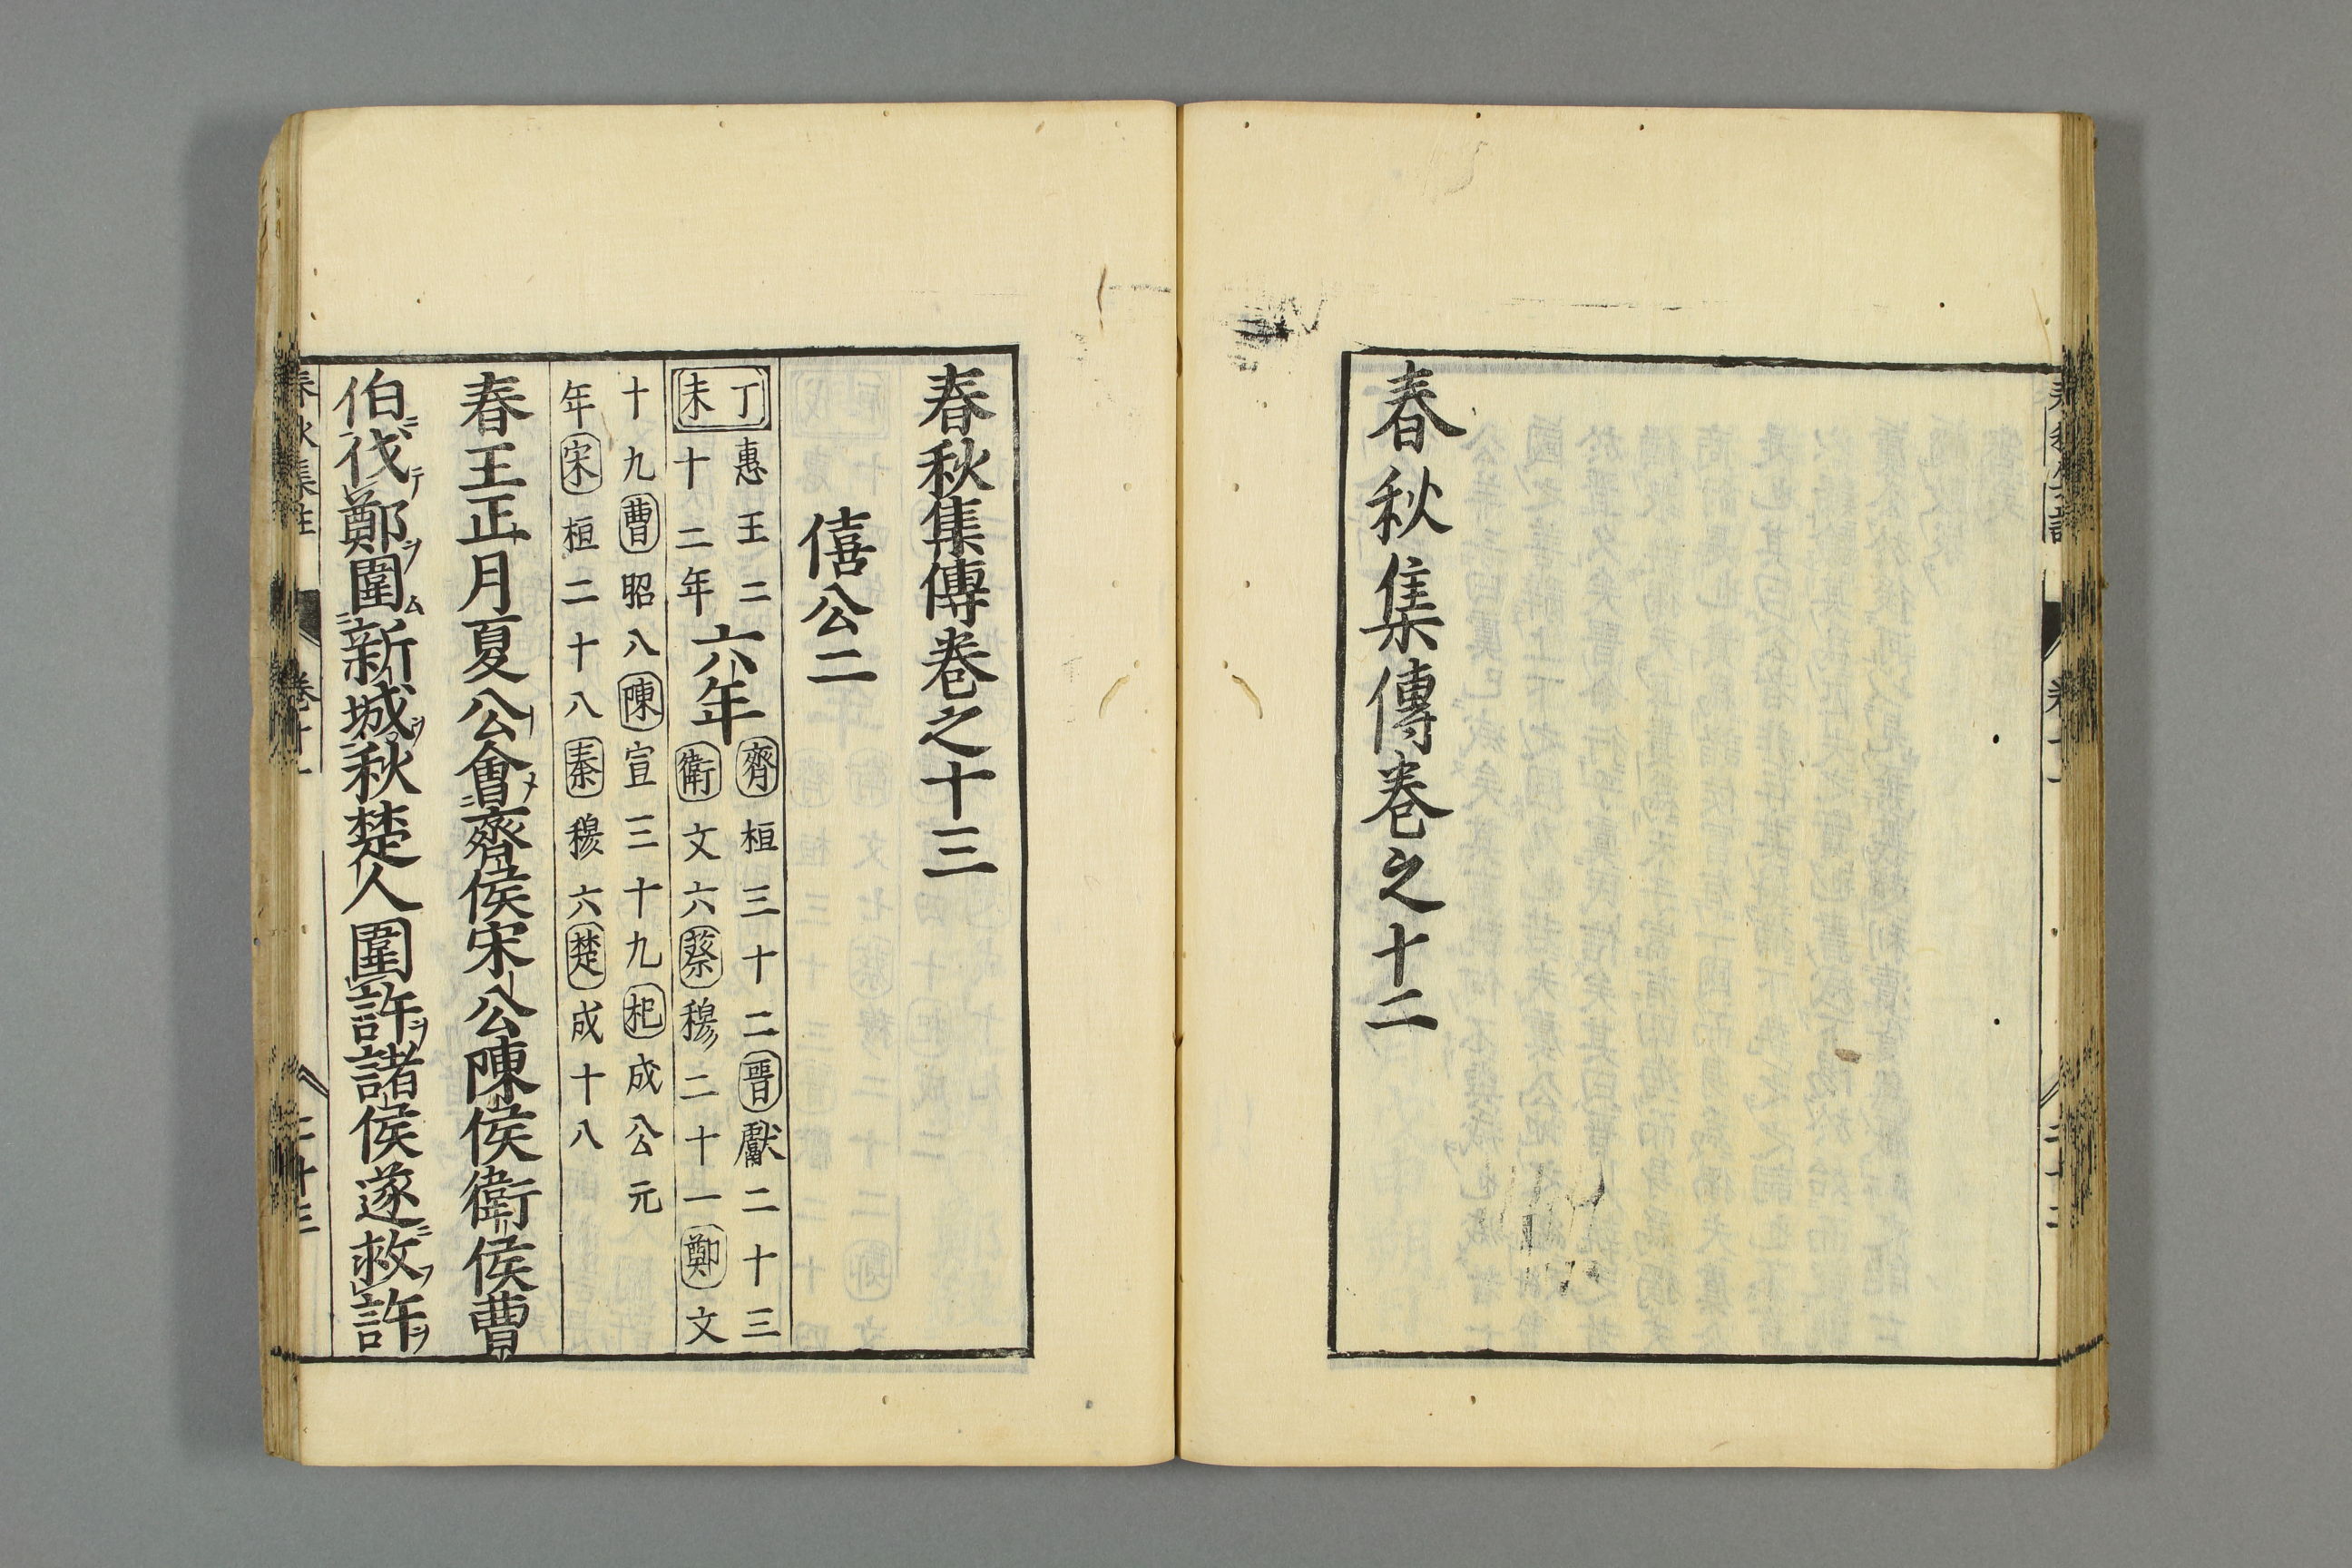 春秋集傳卷之十二
春秋集傳卷之十三
僖公二
丁未
惠王二
十二年
六年
齊桓三十二晉獻二十三
衛文六蔡穆二十一鄭文
十九曹昭八陳宣三十九杞成公元
年宋桓二十八秦穆六楚成十八
春王正月夏公會齊侯宋公陳侯衛侯曹
伯伐鄭圍新城秋楚人圍許諸侯遂救許